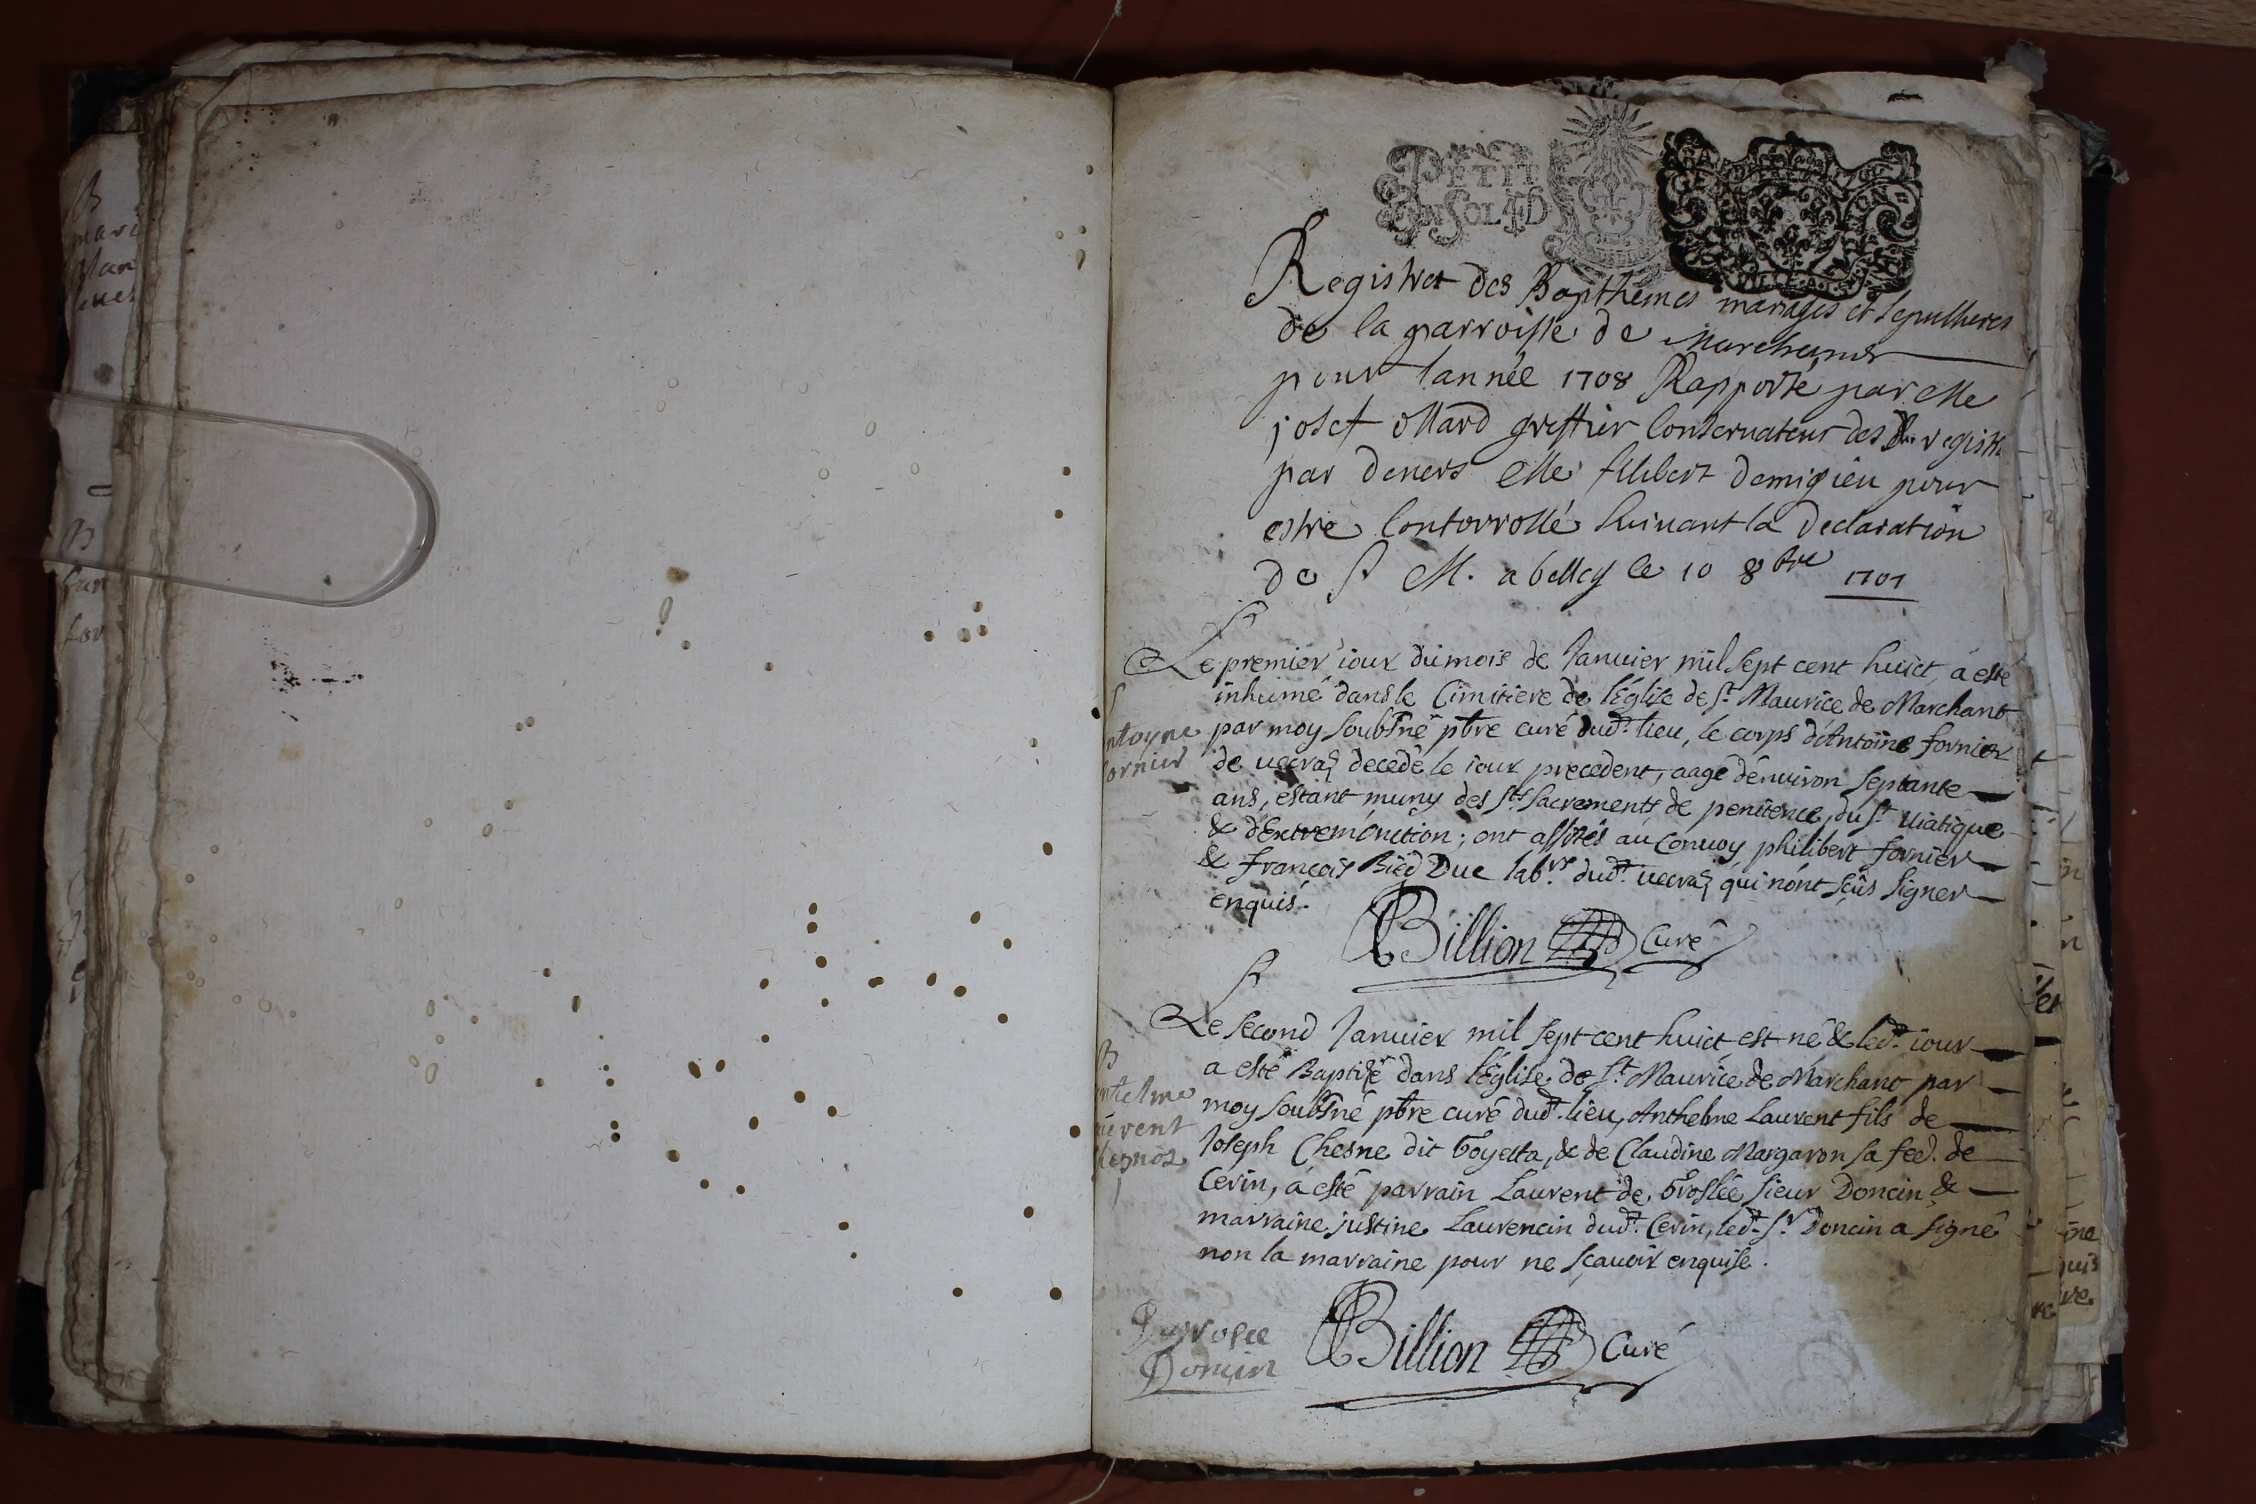 PETIT
EN SOL
Registre des Bapthemes mariages et sepultures
de la parroisse de Marchamp
pour lannée 1708 Rapporté par Me
josef ollard greffier Conservateur des registre
par devers Me filibert demigieu pour
estre Contorrollé suivant la declaration
de S M. a belley le 10 8bre 1707
S
Le premier iour du mois de Ianvier mil sept cent huict, a esté
inhumé dans le Cimitiere de l'Eglise de St Maurice de Marchant
ntoyne
ornier
par moy soubsné ptre curé dudt lieu, le corps d'Antoine fornier
de uecraz decedé le iour precedent, aagé d'enuiron septante
ans, estant muny des sts sacrements de penitence, du st uiatique
& d'Extremonction; ont assistés au Conuoy philibert fornier
& françois Bied Duc labrs dudt uecraz qui n'ont sçus signer
enquis.
Billion Curé
Le second Ianvier mil sept cent huict est né & ledt iour
a esté Baptisé dans l'Eglise de St Maurice de Marchant par
B
ntelme
urent
moy soubsné ptre curé dudt lieu, Anthelme Laurent fils de
Ioseph Chesne dit Goyetta, & de Claudine Margaron sa fed. de
Cerin, a esté parrain Laurent de Groslée sieur Doncin &
marraine justine Laurencin dudt Cerin, ledt Sr Doncin a signé
non la marraine pour ne sçauoir enquise.
Degrolee
Doncin
Billion Curé